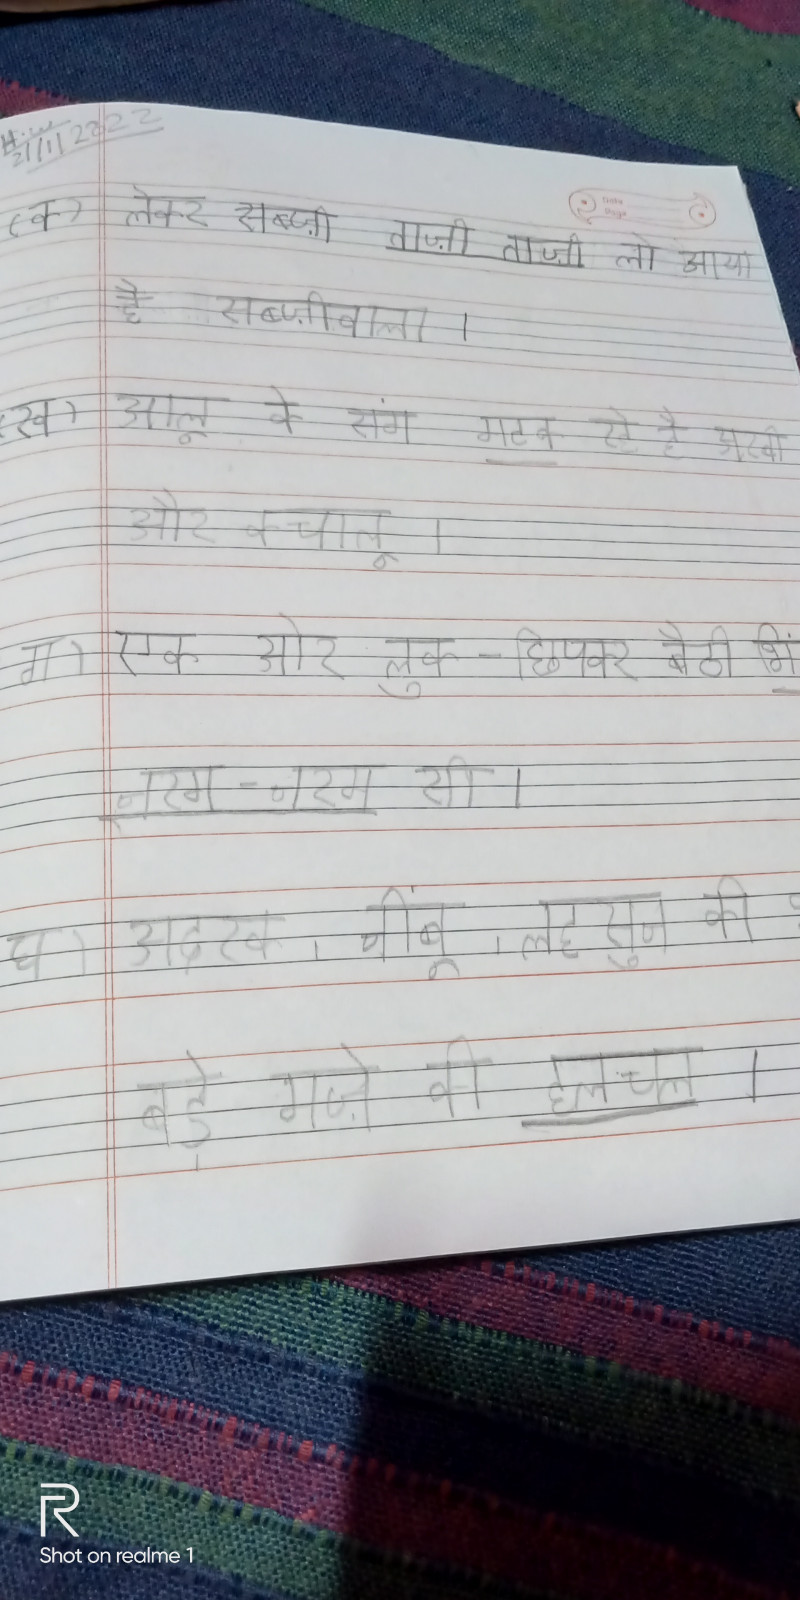 H.W
21/11/2022
(क) लेकर सब्ज़ी ताज़ी ताज़ी लो आया
है सब्ज़ीवाला ।
(ख) आलू के संग मटक रहे है अरबी
और कचालू ।
ग) एक ओर लुक-छिपकर बैठी भिं
नरम-नरम सी ।
घ) अदरक, नींबू, लहसुन की
बड़े मज़े की हलचल ।
R
Shot on realme 1